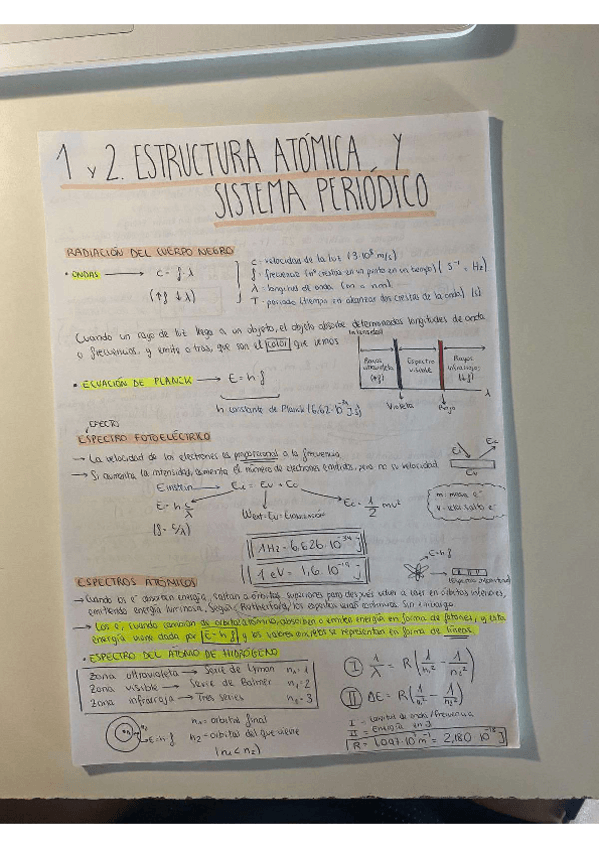 1 y 2. ESTRUCTURA ATÓMICA Y
SISTEMA PERIÓDICO
RADIACIÓN DEL CUERPO NEGRO
• ONDAS → c = f · λ
(↑f ↓λ)
c - velocidad de la luz (3·10⁸ m/s)
f - frecuencia (nº crestas en un punto en un tiempo) (s⁻¹ = Hz)
λ - longitud de onda (m o nm)
T - periodo (tiempo en alcanzar dos crestas de la onda) (s)
Cuando un rayo de luz llega a un objeto, el objeto absorbe determinadas longitudes de onda
o frecuencias, y emite otras, que son el color que vemos
Intensidad
Rayos ultravioleta (↑f)
Espectro visible
Rayos infrarrojos (↓f)
λ
Violeta
Rojo
• ECUACIÓN DE PLANCK → E = h f
h constante de Planck (6,62·10⁻³⁴ J s)
EFECTO
ESPECTRO FOTOELÉCTRICO
→ La velocidad de los electrones es proporcional a la frecuencia
→ Si aumenta la intensidad, aumenta el número de electrones emitidos, pero no su velocidad
Einstein → Ei = Eu + Ec
E = h c/λ
(f = c/λ)
Ec = 1/2 mv²
Ei
Ec
Eu
m = masa e⁻
1 Hz = 6,626·10⁻³⁴ J
1 eV = 1,6·10⁻¹⁹ J
ESPECTROS ATÓMICOS
E = h·f
→ Cuando los e⁻ absorben energía, saltan a órbitas superiores para después volver a caer en órbitas inferiores,
emitiendo energía luminosa. Según Rutherford, los espectros serían continuos. Sin embargo
→ Los e⁻, cuando cambian de órbita atómica, absorben o emiten energía en forma de fotones, y esta
energía viene dada por E = h·f y los valores concretos se representan en forma de líneas.
• ESPECTRO DEL ÁTOMO DE HIDRÓGENO
Zona ultravioleta → Serie de Lyman n₁ = 1
Zona visible → Serie de Balmer n₁ = 2
Zona infrarroja → Tres series n₁ = 3
I 1/λ = R(1/n₁² - 1/n₂²)
II ΔE = R(1/n₁² - 1/n₂²)
E = h·f
n₁ = órbita final
n₂ - órbitas del que viene
(n₁ < n₂)
I = Longitud de onda / frecuencia
II = Energía en J
R = 1,097·10⁷ m⁻¹ = 2,180·10⁻¹⁸ J